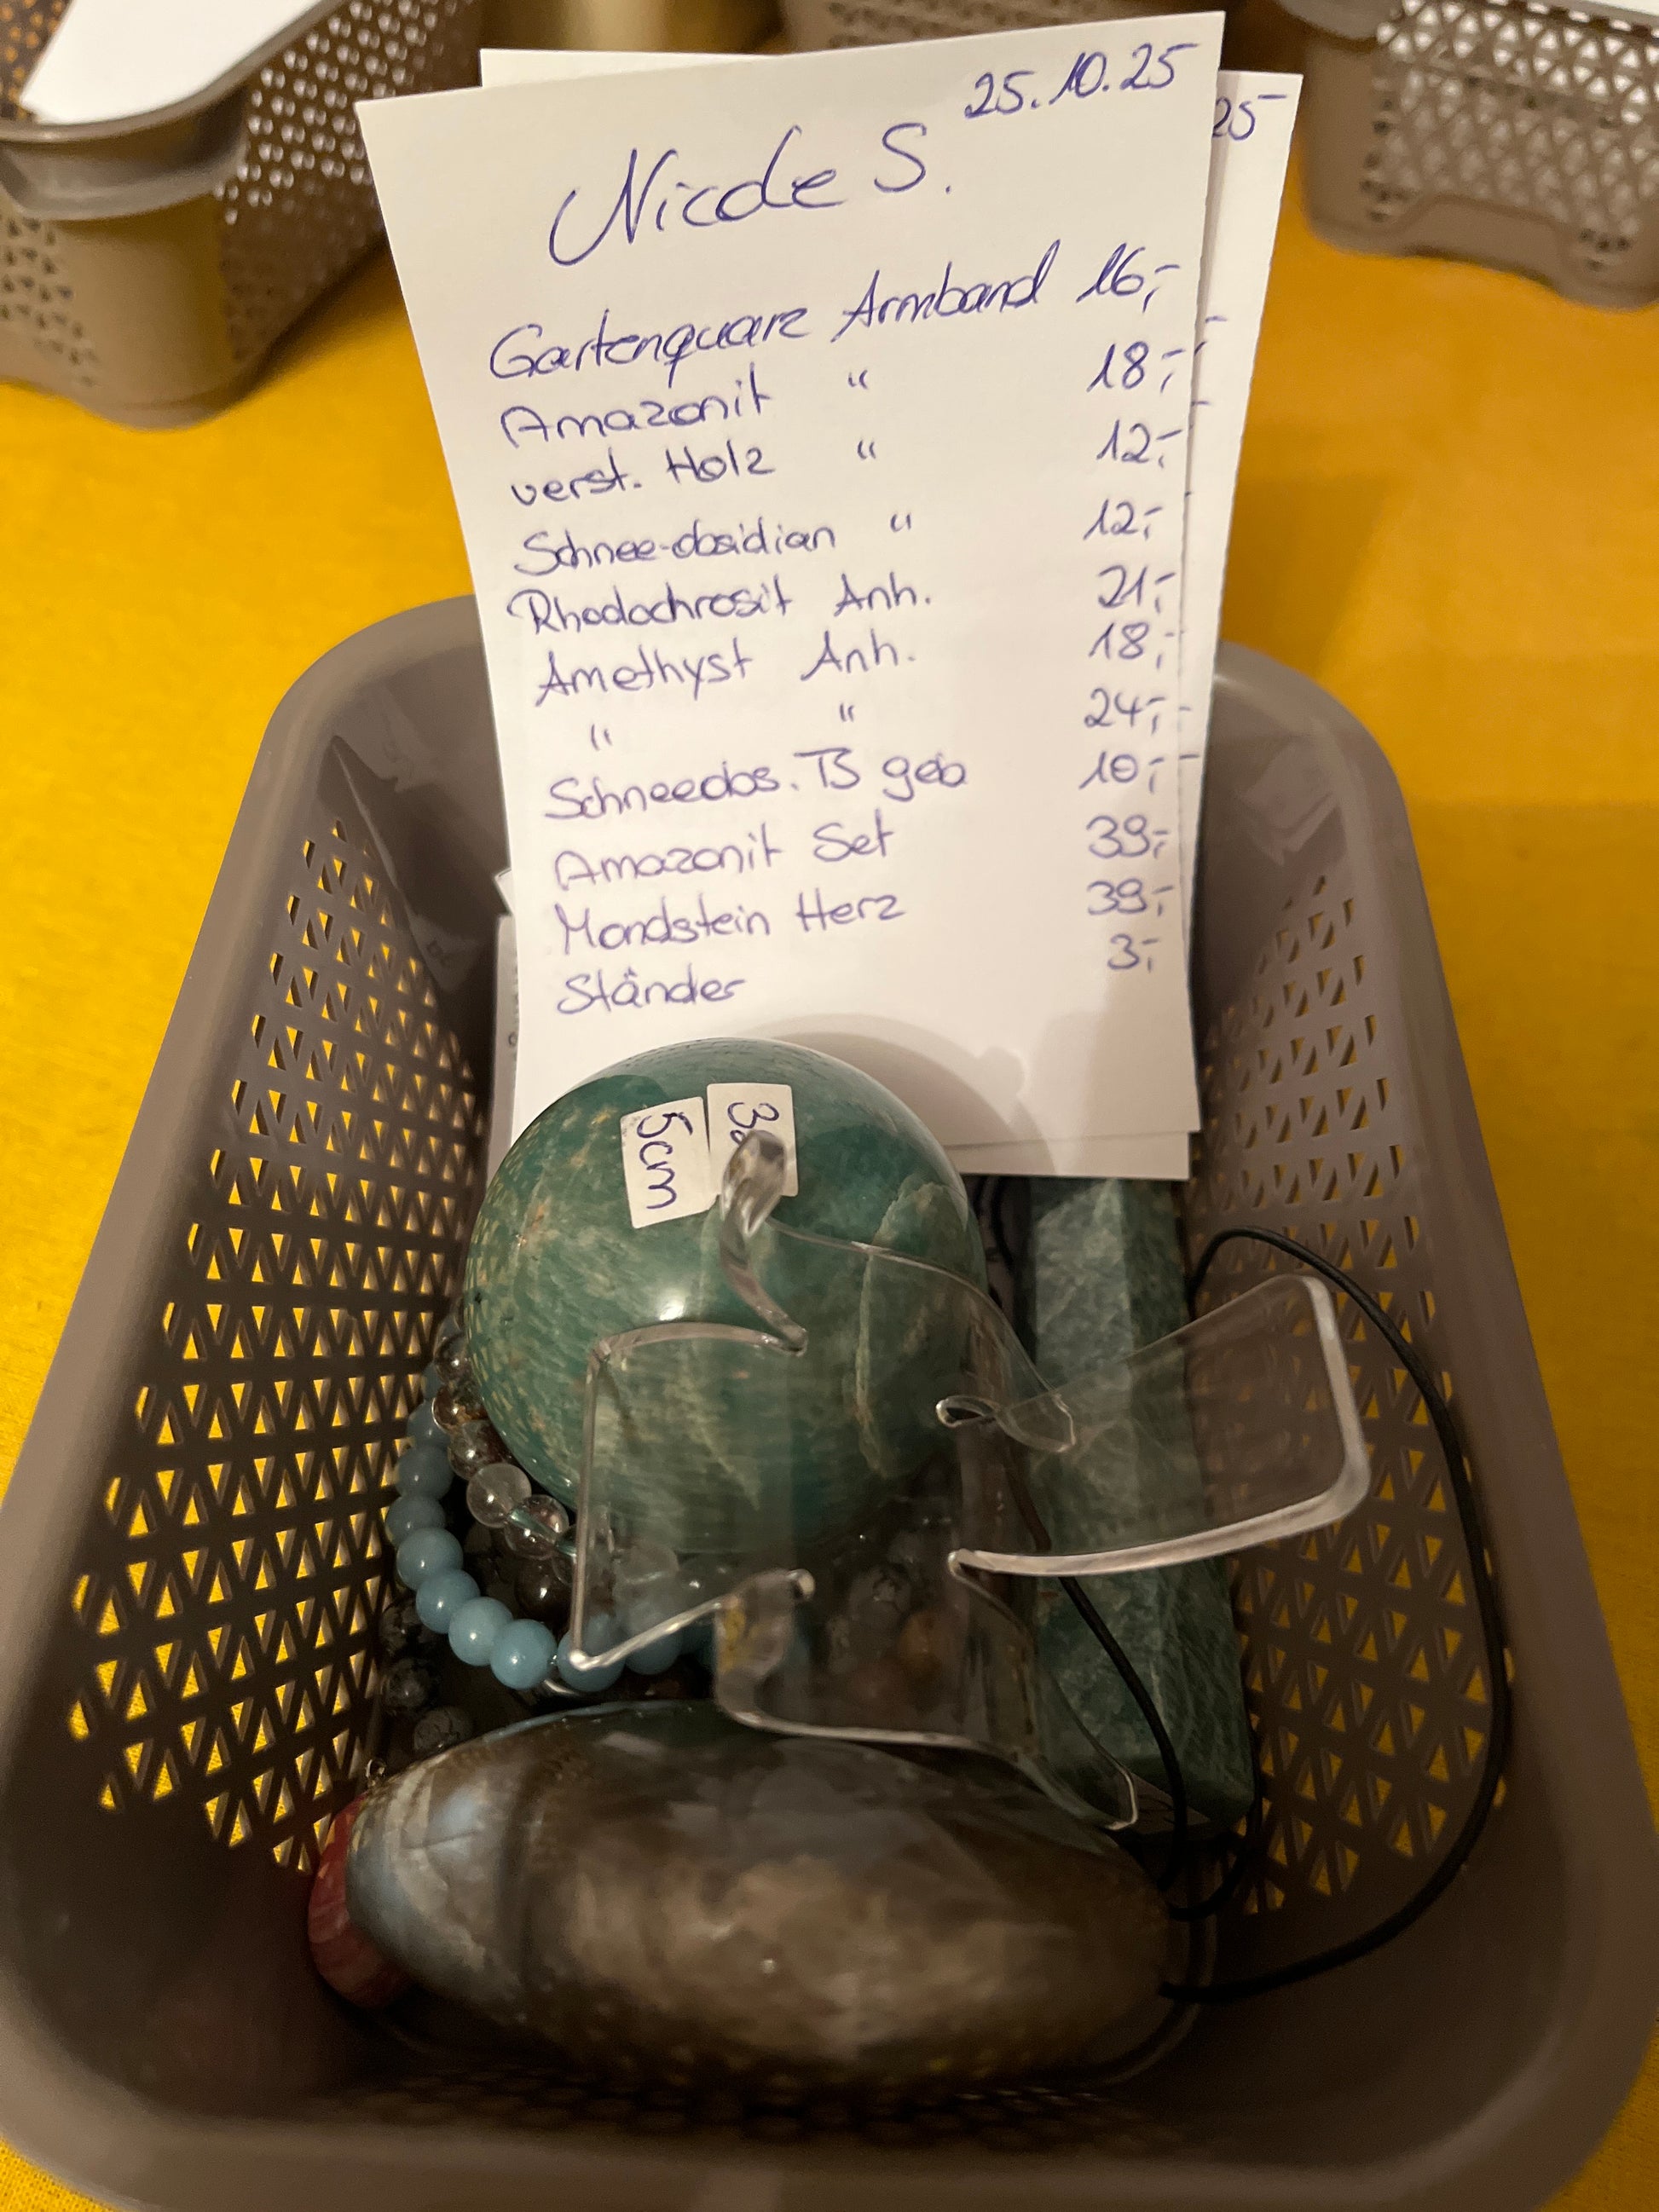 25.10.25
25
Nicole S.
Gartenquarz Armband 16,-
Amazonit " 18,-
verst. Holz " 12,-
Schnee-obsidian " 12,-
Rhodochrosit Anh. 21,-
Amethyst Anh. 18,-
" " 24,-
Schneeobs. TS geb 10,-
Amazonit Set 39,-
Mondstein Herz 39,-
Ständer 3,-
5cm